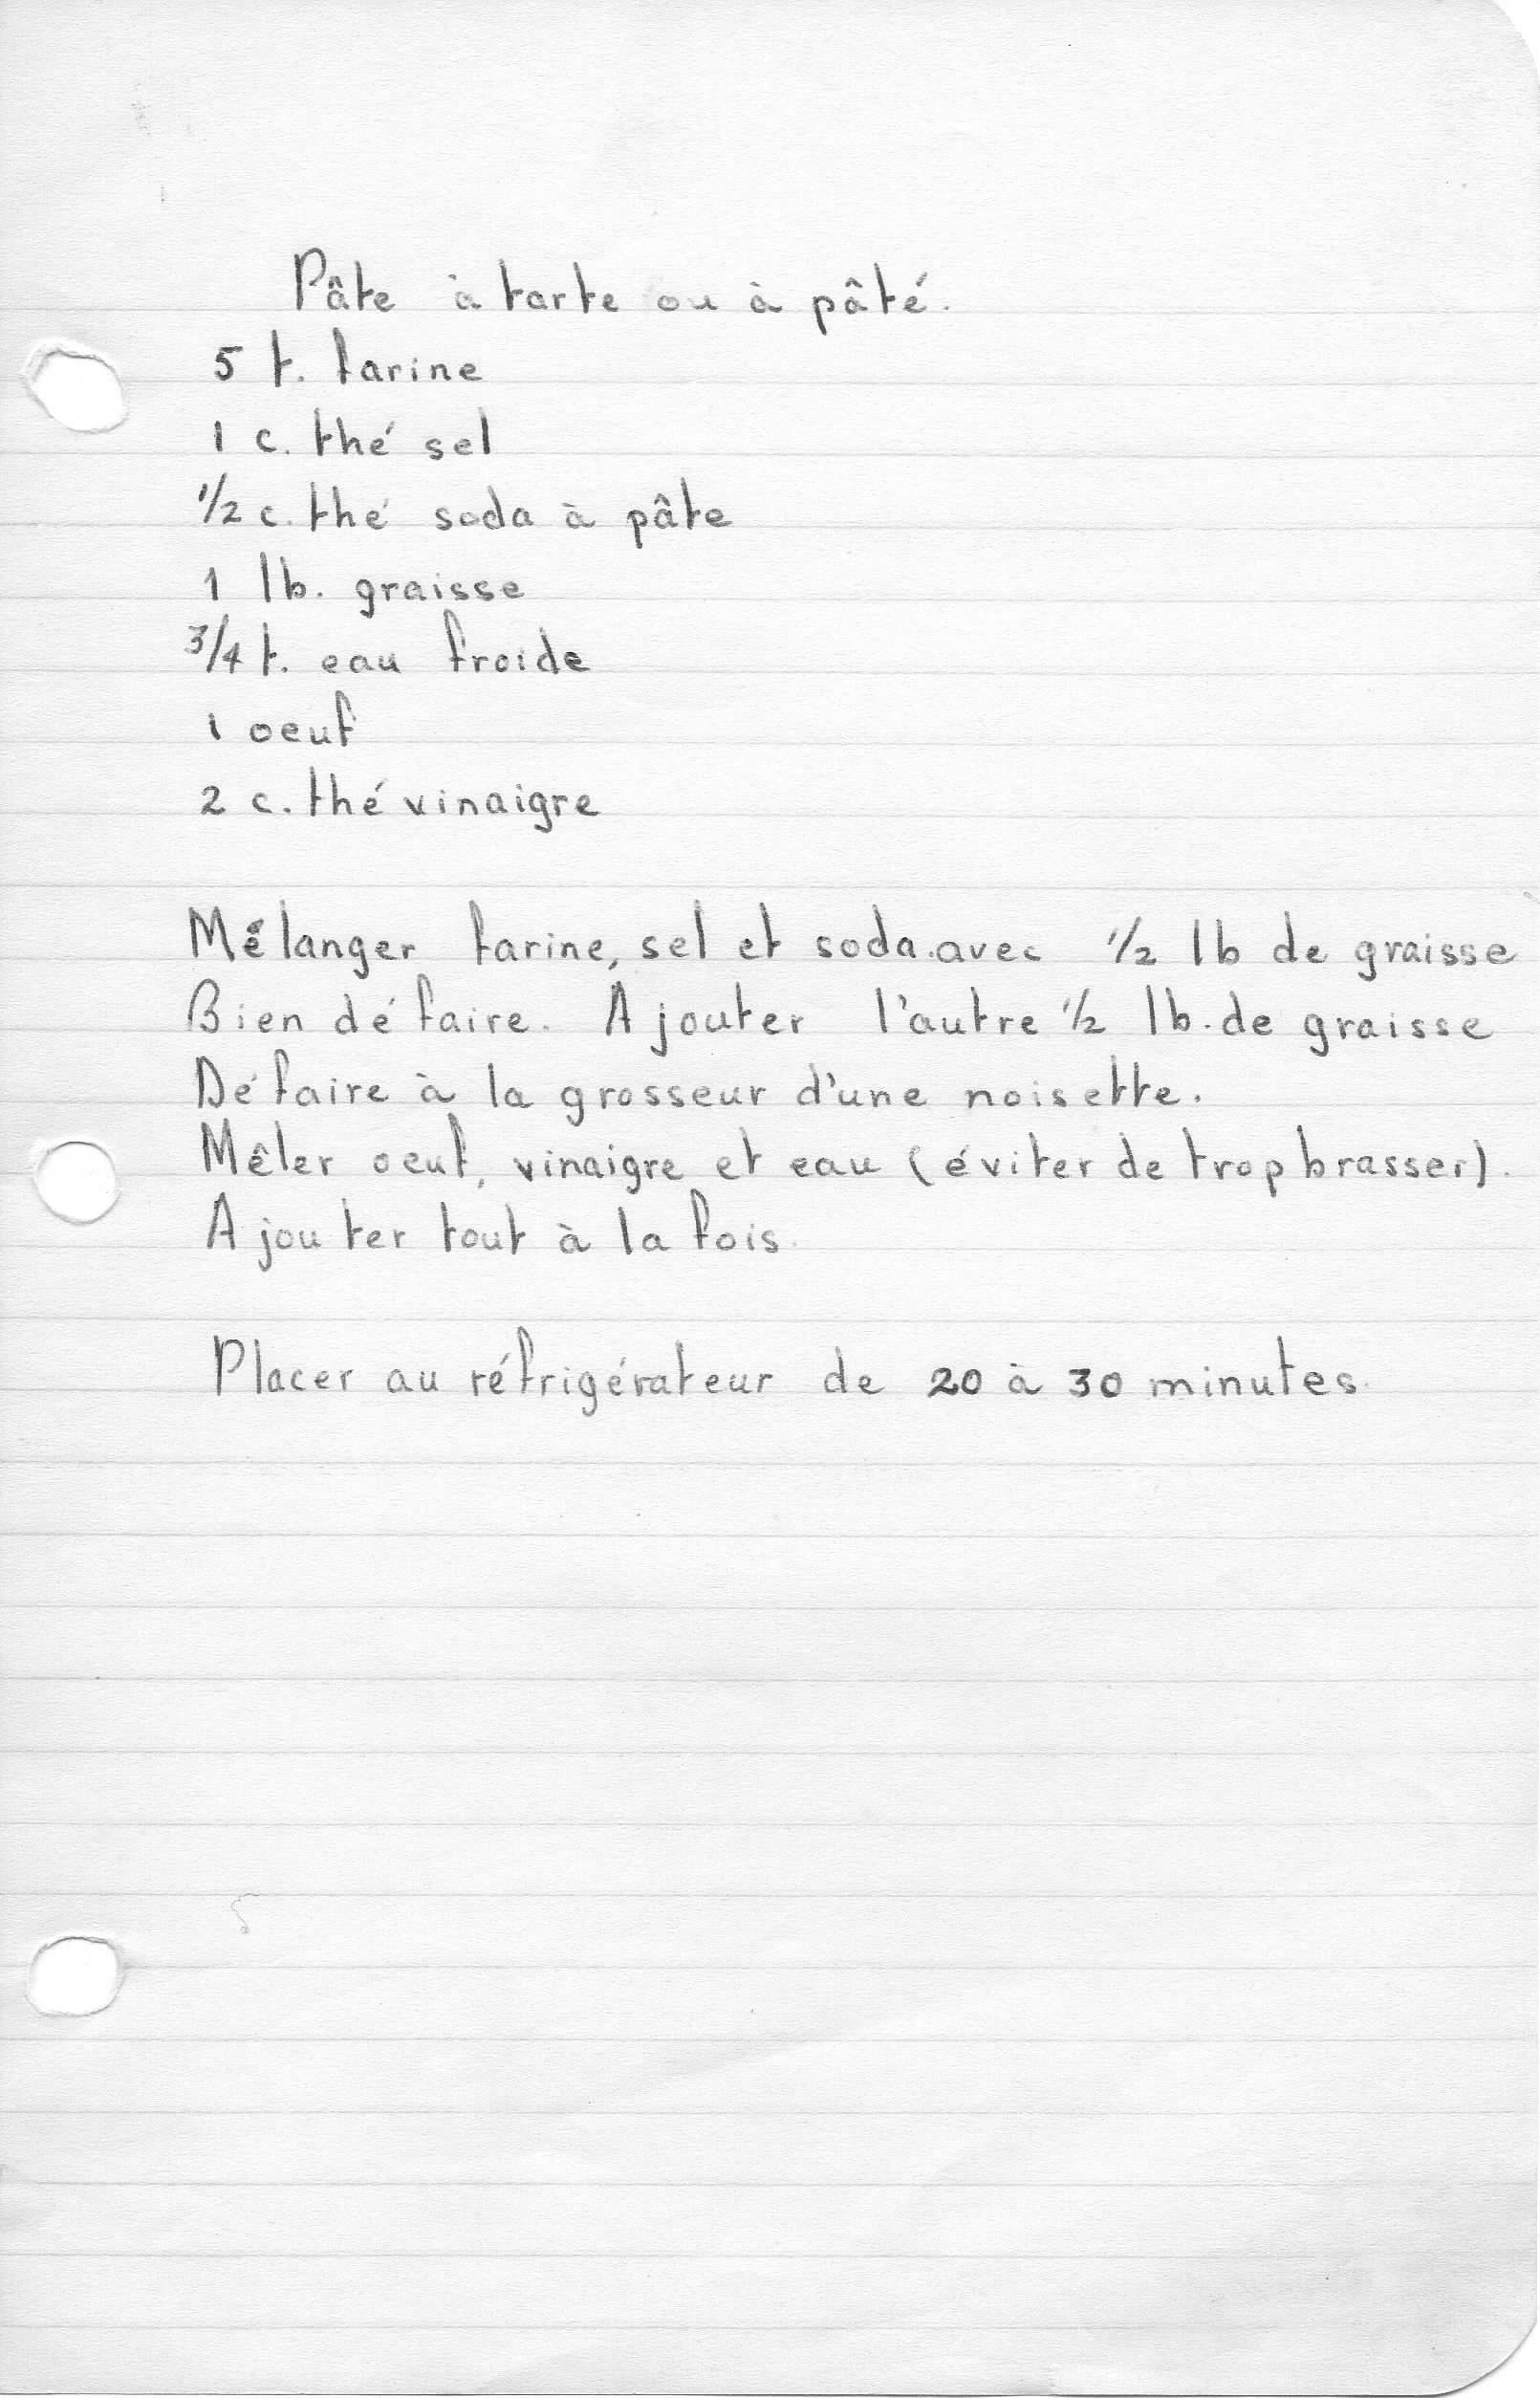 Pâte à tarte ou à pâté.
5 t. farine
1 c. thé sel
1/2 c. thé soda à pâte
1 lb. graisse
3/4 t. eau froide
1 oeuf
2 c. thé vinaigre
Mélanger farine, sel et soda avec 1/2 lb de graisse
Bien défaire. Ajouter l'autre 1/2 lb. de graisse
Défaire à la grosseur d'une noisette.
Mêler oeuf, vinaigre et eau (éviter de trop brasser).
Ajouter tout à la fois.
Placer au réfrigérateur de 20 à 30 minutes.